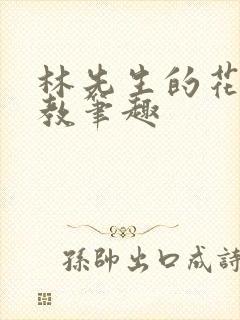 林先生的花
教笔趣
孫帥出口成詩